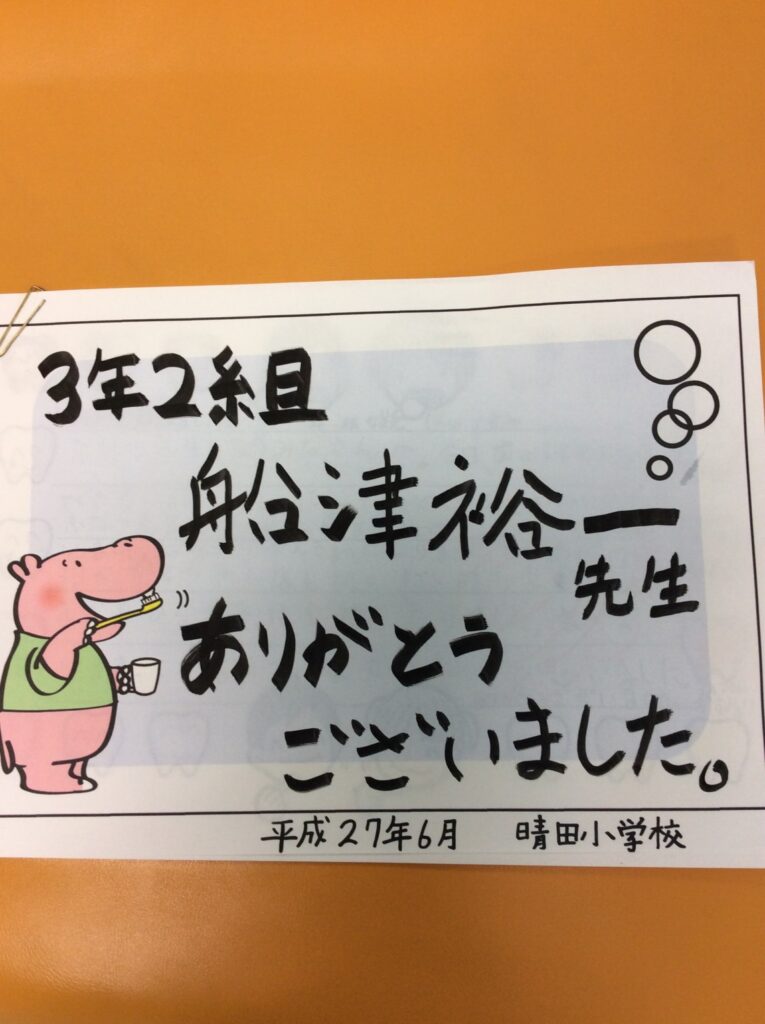 3年2組
船津裕一
先生
ありがとう
ございました。
平成27年6月 晴田小学校